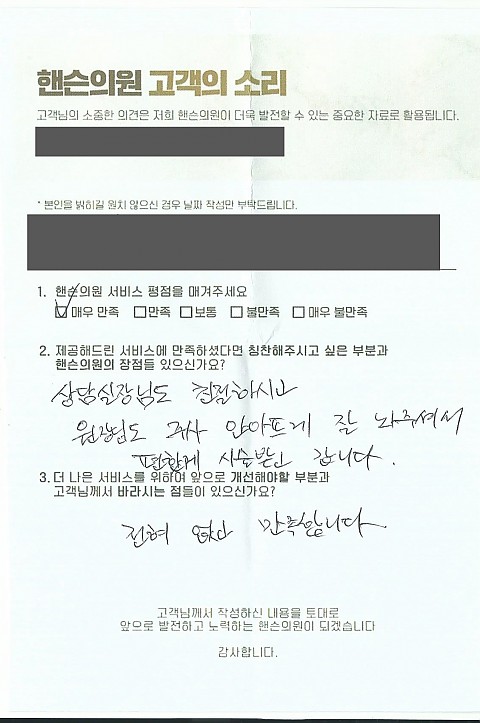 핸슨의원 고객의 소리
고객님의 소중한 의견은 저희 핸슨의원이 더욱 발전할 수 있는 중요한 자료로 활용됩니다.
* 본인을 밝히길 원치 않으신 경우 날짜 작성만 부탁드립니다.
1. 핸슨의원 서비스 평점을 매겨주세요
매우 만족 만족 보통 불만족 매우 불만족
2. 제공해드린 서비스에 만족하셨다면 칭찬해주시고 싶은 부분과
핸슨의원의 장점들 있으신가요?
상담실장님도 친절하시고
원장님도 주사 안아프게 잘 놔주셔서
편안하게 시술받고 갑니다.
3. 더 나은 서비스를 위하여 앞으로 개선해야할 부분과
고객님께서 바라시는 점들이 있으신가요?
전혀 없고 만족합니다
고객님께서 작성하신 내용을 토대로
앞으로 발전하고 노력하는 핸슨의원이 되겠습니다
감사합니다.